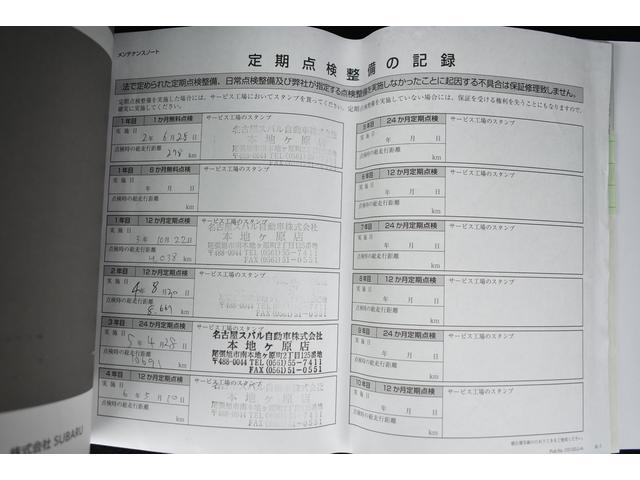 メンテナンスノート
定期点検整備の記録
法で定められた定期点検整備、日常点検整備及び弊社が指定する点検整備を実施しなかったことに起因する不具合は保証修理致しません。
定期点検整備を実施した場合には、サービス工場においてスタンプを貰ってください。定期点検整備を実施していない場合には、保証を受ける権利を失うことにもなりますので、
確実に実施してください。
1年目 1か月無料点検
サービス工場のスタンプ
実施日
2年6月28日
点検時の総走行距離
298 km
名古屋スバル自動車株式会社
本地ヶ原店
1年目 6か月無料点検
サービス工場のスタンプ
実施日
年 月 日
点検時の総走行距離
km
1年目 12か月定期点検
サービス工場のスタンプ
実施日
3年10月22日
点検時の総走行距離
4,038 km
名古屋スバル自動車株式会社
本地ヶ原店
尾張旭市南本地ヶ原町2丁目125番地
〒488-0044 TEL(0561)55-7411
FAX(0561)51-0551
2年目 12か月定期点検
サービス工場のスタンプ
実施日
4年8月30日
点検時の総走行距離
km
3年目 24か月定期点検
サービス工場のスタンプ
実施日
5年4月28日
点検時の総走行距離
10691 km
名古屋スバル自動車株式会社
本地ヶ原店
尾張旭市南本地ヶ原町2丁目125番地
〒488-0044 TEL(0561)55-7411
FAX(0561)51-0551
4年目 12か月定期点検
サービス工場のスタンプ
実施日
6年5月10日
点検時の総走行距離
km
5年目 24か月定期点検
サービス工場のスタンプ
実施日
年 月 日
点検時の総走行距離
km
6年目 12か月定期点検
サービス工場のスタンプ
実施日
年 月 日
点検時の総走行距離
km
7年目 24か月定期点検
サービス工場のスタンプ
実施日
年 月 日
点検時の総走行距離
km
8年目 12か月定期点検
サービス工場のスタンプ
実施日
年 月 日
点検時の総走行距離
km
9年目 24か月定期点検
サービス工場のスタンプ
実施日
年 月 日
点検時の総走行距離
km
10年目 12か月定期点検
サービス工場のスタンプ
実施日
年 月 日
点検時の総走行距離
km
株式会社 SUBARU